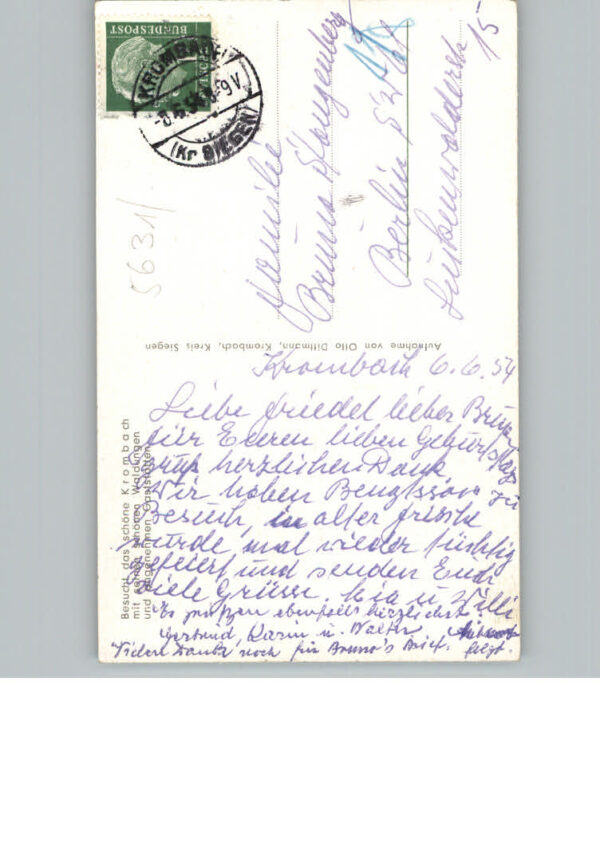 DEUTSCHE
BUNDESPOST
KROMBACH
-8.6.54.8-9V
(Kr SIEGEN)
Familie
Bruno Klangenberg
Berlin SW 61
Luckenwalderstr
15
5631/
Aufnahme von Otto Dittmann, Krombach, Kreis Siegen
Krombach 6.6.54
Liebe Friedel lieber Bruno
für Eueren lieben Geburtstags
gruß herzlichen Dank
Wir haben Bengtsson zu
Besuch, in alter Frische
wurde mal wieder tüchtig
gefeiert und senden Euch
viele Grüsse. Mia u. Willi
Es grüßen ebenfalls herzlichst
Gertrud, Karin u. Walter. Antwort
folgt.
Vielen Dank noch für Bruno's Brief.
Besucht das schöne Krombach
mit seinen schönen Waldungen
und angenehmen Gaststätten